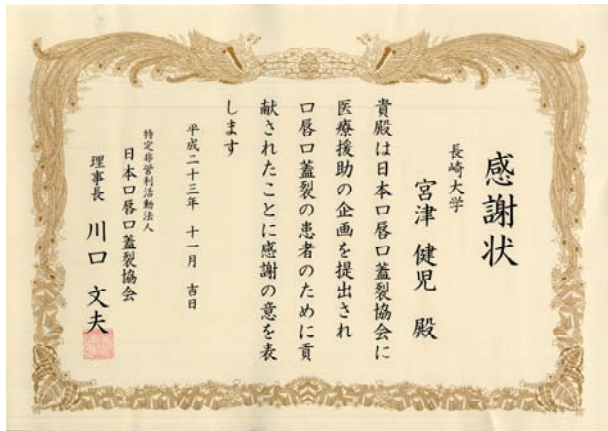 感謝状
長崎大学
宮津 健児 殿
貴殿は日本口唇口蓋裂協会に
医療援助の企画を提出され
口唇口蓋裂の患者のために貢
献されたことに感謝の意を表
します
平成二十三年 十一月 吉日
特定非営利活動法人
日本口唇口蓋裂協会
理事長 川口 文夫